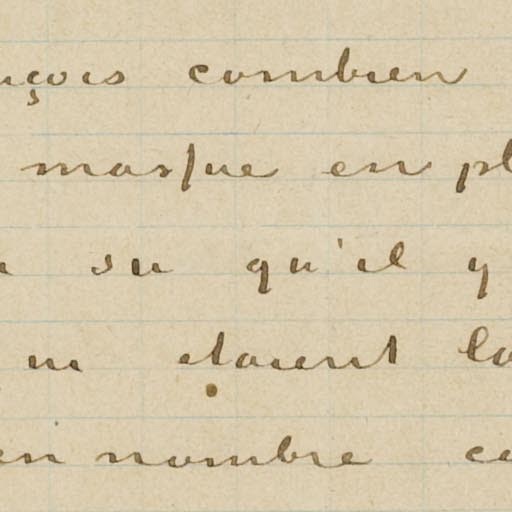 nçois combien
masque en pl
su qu'il y
étaient lo
en nombre co